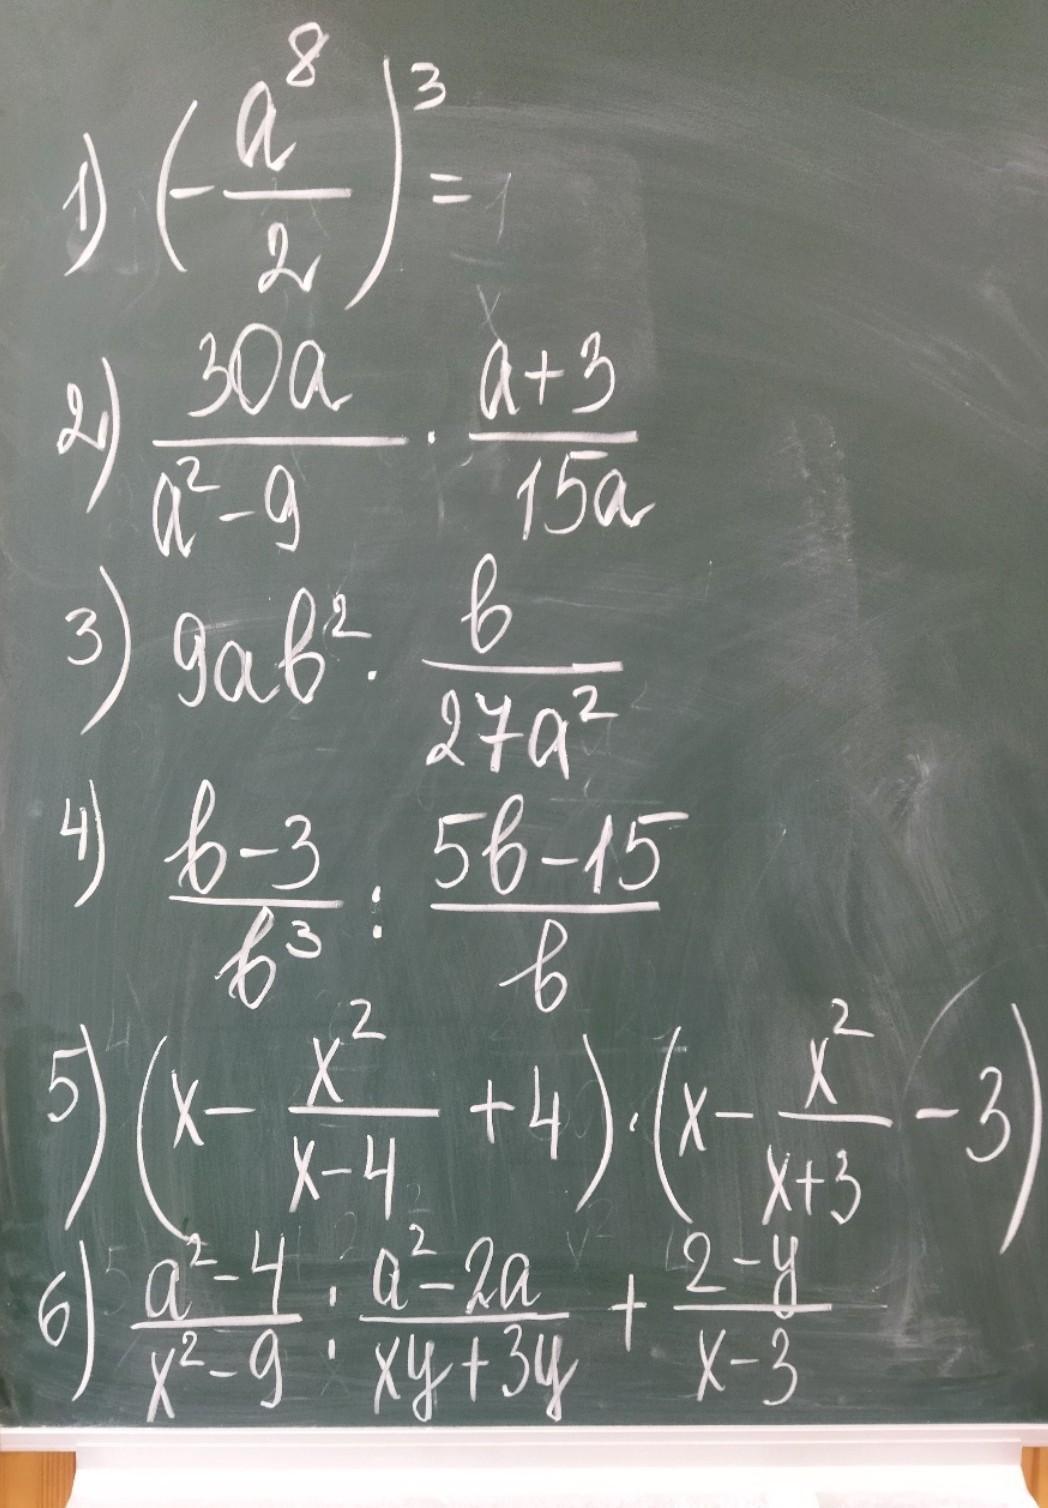 1) (-a⁸/2)³ =
2) 30a/(a²-9) · (a+3)/15a
3) 9ab² · b/27a²
4) (b-3)/b³ : (5b-15)/b
5) (x - x²/(x-4) + 4) · (x - x²/(x+3) - 3)
6) (a²-4)/(x²-9) : (a²-2a)/(xy+3y) + (2-y)/(x-3)